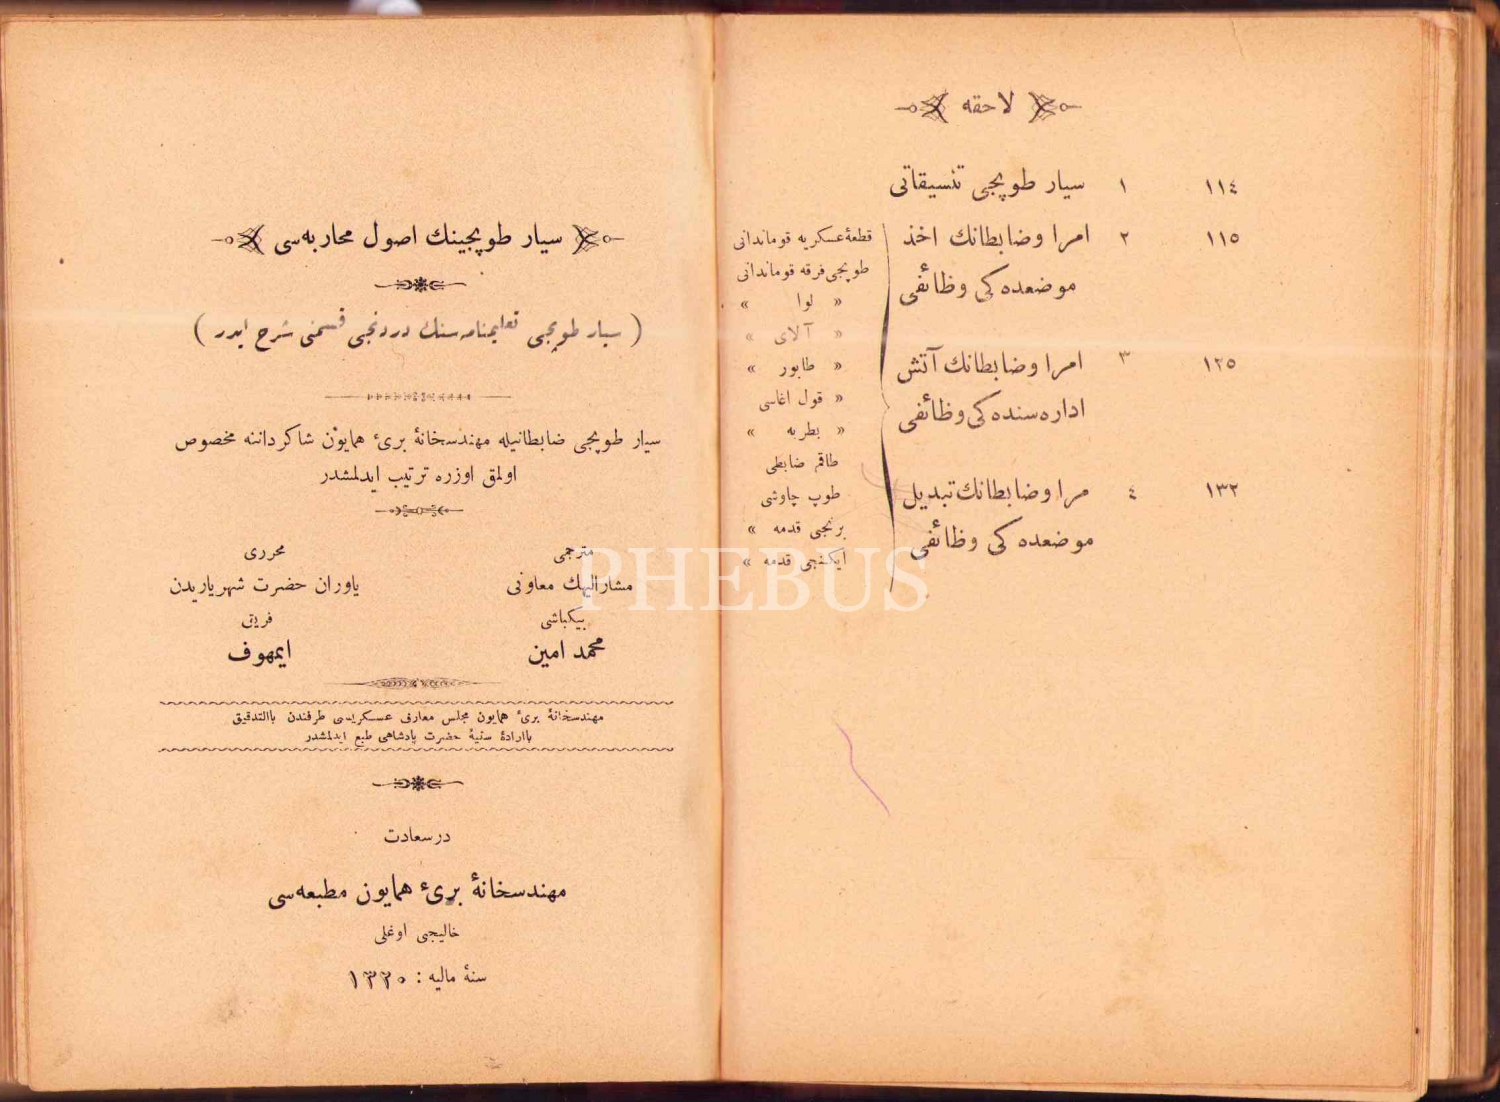 لاحقه
١١٤ ١ سیار طوپجی تنسیقاتی
١١٥ ٢ امرا وضابطانك اخذ
موضعده کی وظائفی
١٢٥ ٣ امرا وضابطانك آتش
اداره سنده کی وظائفی
١٣٢ ٤ مرا وضابطانك تبدیل
موضعده کی وظائفی
قطعهٔ عسکریه قوماندانی
طوپجی فرقه قوماندانی
« لوا »
« آلای »
« طابور »
« قول اغاسی
« بطریه »
طاقم ضابطی
طوپ چاوشی
برنجی قدمه »
ایکنجی قدمه »
سیار طوپجینك اصول محاربه سی
( سیار طوپجی تعلیمنامه سنك دردنجی قسمنی شرح ایدر )
سیار طوپجی ضابطانیله مهندسخانهٔ بریٔ همایون شاکرداننه مخصوص
اولمق اوزره ترتیب ایدلمشدر
مترجمی
مشارالیهك معاونی
بیکباشی
محمد امین
محرری
یاوران حضرت شهریاریدن
فریق
ایمهوف
مهندسخانهٔ بریٔ همایون مجلس معارف عسکریسی طرفندن باالتدقیق
باارادهٔ سنیهٔ حضرت پادشاهی طبع ایدلمشدر
درسعادت
مهندسخانهٔ بریٔ همایون مطبعه سی
خالیجی اوغلی
سنهٔ مالیه : ١٣٢٠
PHEBUS